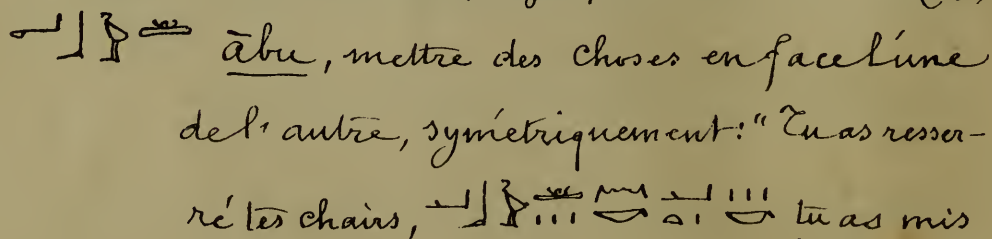 ābu, mettre des choses en face l'une
de l'autre, symétriquement: "Tu as resser-
ré tes chairs, tu as mis